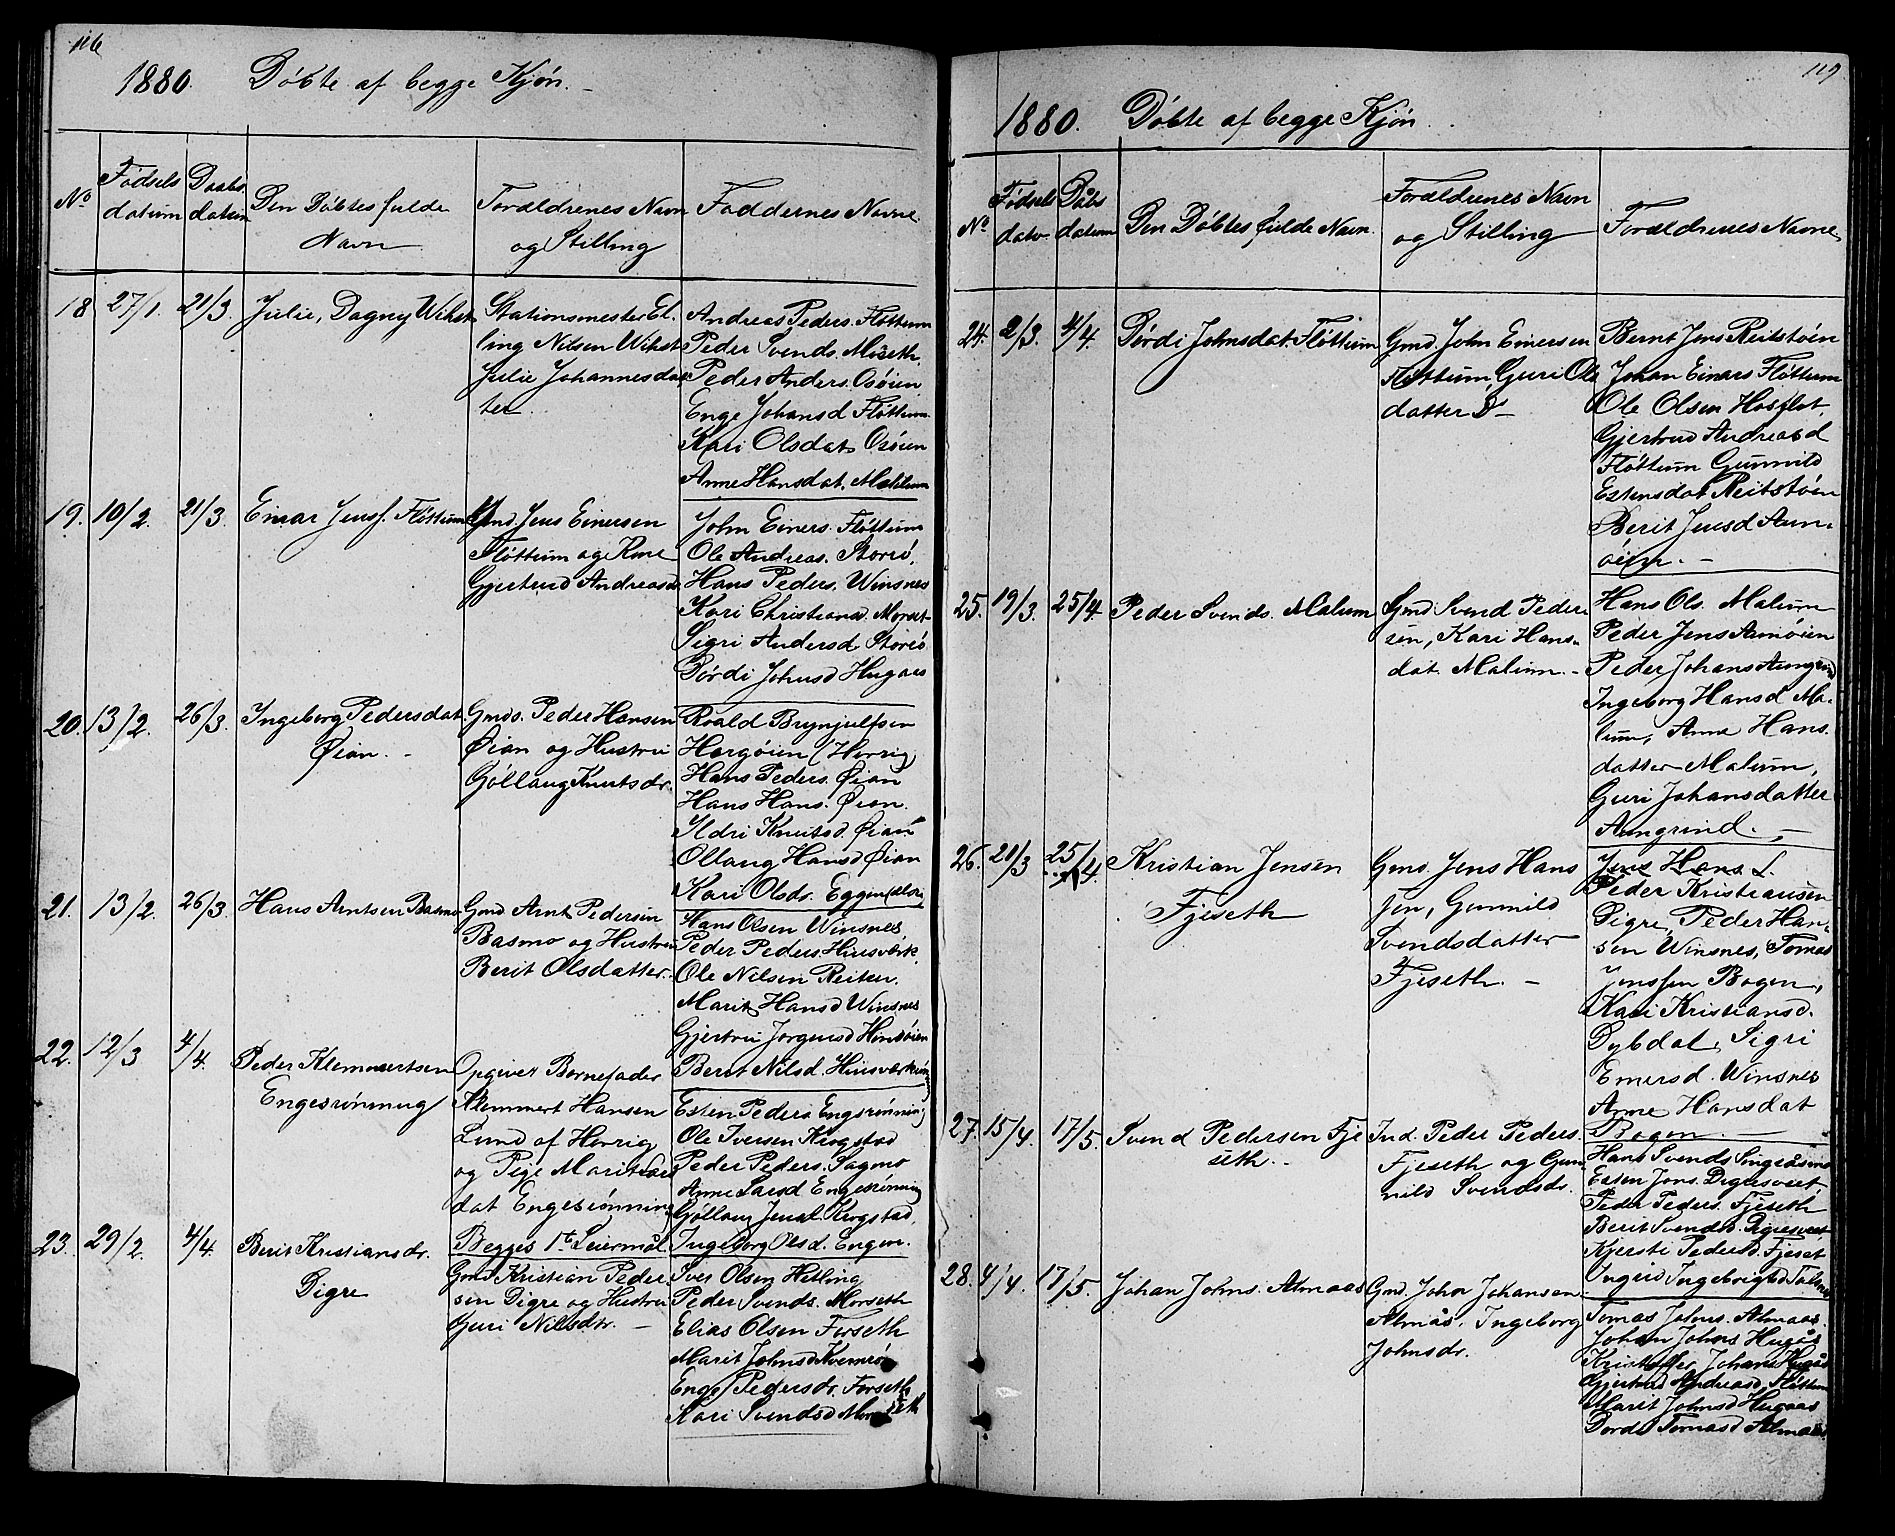 116
1880. Döbte af begge Kjön. -
No
Födsels
datum
Daabs
datum
Den Döbtes fulde
Navn
Forældrenes Navn
og Stilling
Faddernes Navne
18 27/1. 21/3. Julie, Dagny Wikst
Stationsmester El.
ling Nilsen Wikst
Julie Johannesdat
ter
Andreas Peders. Flöttum
Peder Svends. Moseth
Peder Anders. Osöien
Enge Johansd Flöttum
Kari Olsdat. Osöien
Anne Hansdat. Malum
19. 10/2. 21/3. Einar Jensf. Flöttum
Gmd. Jens Einersen
Flöttum og Kone
Gjertrud Andreasd
John Einers. Flöttum
Ole Andreas. Storeö.
Hans Peders. Winsnes
Kari Christiansd.
Sigri Andersd Storeö
Dördi Johnsd Hugaas
20. 13/2. 26/3. Ingeborg Pedersdat
Øian. -
Gmds. Peder Hansen
Øian og Hustru
Göllaug Knutsdr.
Roald Brynjulfsen
Hargöien (Horrig
Hans Peders. Øian
Hans Hans. Øian.
Ildri Knutsd. Øian
Ollaug Hansd Øian
Kari Olsdr. Eggen
21. 13/2. 26/3. Hans Arntsen Basmo
Gmd Arnt Pedersen
Basmo og Hustru
Berit Olsdatter.
Hans Olsen Winsnes,
Peder Peders. Huusværk.
Ole Nilsen Reiten.
Marit Hansd Winsnes
Gjertru Jorgensd
Berit Nilsd.
22. 12/3 4/4. Peder Klemmertsen
Engesrönning
Opgiven Barnefader
Klemmert Hansen
Lund af Horrig
og Pige Marit
dat Engesrönning
Begges 1te Leiermål.
Esten Peders Engsrönning
Ole Iversen Krogstad
Peder Peders. Sagmo
Anne Larsd Engesrönning
Göllaug Jensd. Krogstad,
Ingeborg Olsd. Engen.
23. 29/2. 4/4. Berit Kristiansdr.
Digre
Gmd Kristian Peder
sen Digre og Hustru
Guri Nilsdtr. -
Iver Olsen Hetling
Peder Svends. Morseth
Elias Olsen Forseth
Marit Johnsd Kvernrö
Enge Pedersdr. Forseth
Kari Svendsd Morseth
119
1880. Döbte af begge Kjön.
No
Födsels
datu
Dåbs
datum
Den Döbtes fulde Navn.
Forældrenes Navn
og Stilling
Forældrenes Navne
24. 2/3. 4/4. Dördi Johnsdat. Flöttum
Gmd. John Einersen
Flöttum, Guri Ols
datter D -
Bernt Jens Reitstöen
Johan Einars Flöttum
Ole Olsen Hosflot
Gjertrud Andreasd
Flöttum Gunnild
Estensdat Reitstöen
Berit Jensd Aun-
öien. -
25. 19/3. 25/4. Peder Svends. Malum
Gmd. Svend Peder
sen, Kari Hans-
dat. Malum. -
Hans Ols. Malum
Peder Jens Aunöien
Peder Johans Aungrind
Ingeborg Hansd Ma-
lum, Anne Hans.
datter Malum,
Guri Johansdatter
Aungrind. -
26. 21/3 25/4. Kristian Jensen
Fjeseth
Gmd. Jens Hans
sen, Gunnild
Svendsdatter
Fjeseth. -
Jens Hans L.
Peder Kristiansen
Digre, Peder Han-
sen Winsnes, Tomas
Jenssen Bogen,
Kari Kristiansd.
Dybdal, Sigri
Einersd. Winsnes
Anne Hansdat
Bogen. -
27. 15/4. 17/5. Svend Pedersen Fje
seth. -
Ind. Peder Peders.
Fjeseth og Gun
nild Svendsdr.
Hans Svends Singsåsmo
Esten Jons. Digresveet,
Peder Peders. Fjeseth
Berit Svendsd. Digresveet
Kjersti Pedersd. Fjeset
Ingrid Ingebrigtsd
28. 4/4. 17/5. Johan Johns. Almaas
Gmd. John Johansen
Almås, Ingeborg
Johnsdr.
Tomas Johns. Almaas.
Johan Johns Hugås
Kristoffer Johans Hugås
Gjertrud Andreasd. Flöttum
Marit Johnsd Hugaas
Dordi Tomasd Almaas.